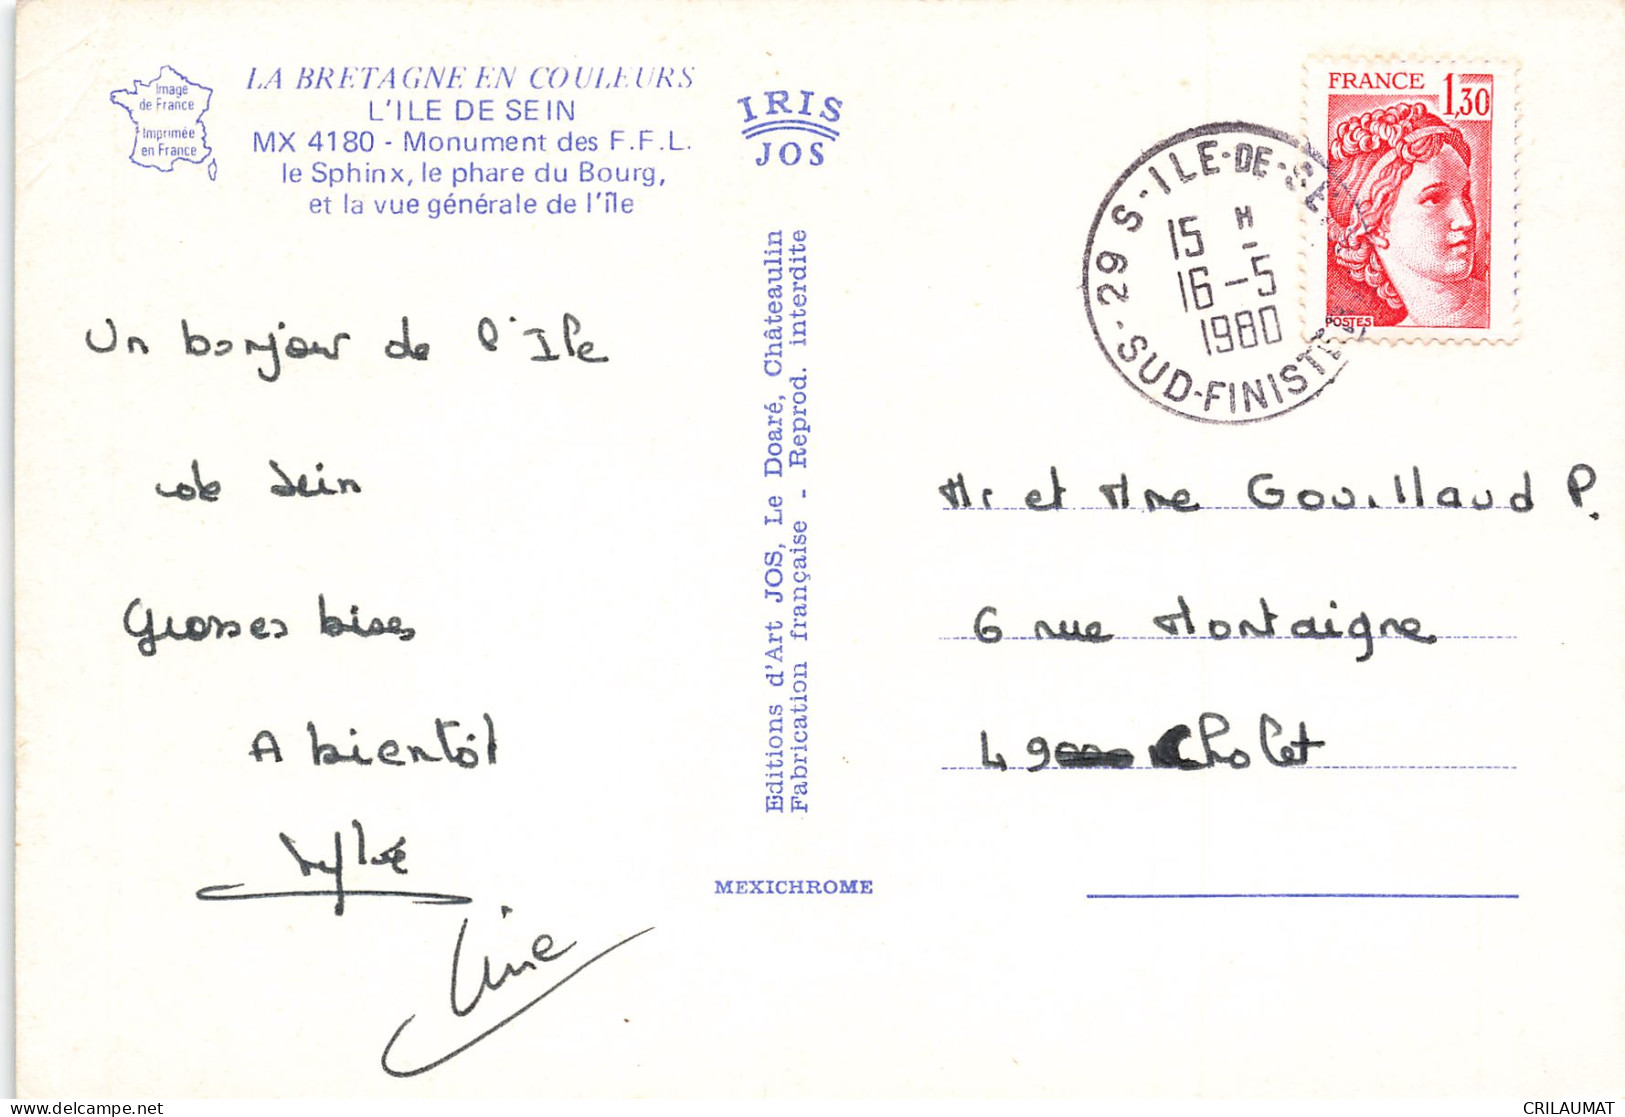 Image
de France
Imprimée
en France
LA BRETAGNE EN COULEURS
L'ILE DE SEIN
MX 4180 - Monument des F.F.L.
le Sphinx, le phare du Bourg,
et la vue générale de l'île
IRIS
JOS
Editions d'Art JOS, Le Doaré, Châteaulin
Fabrication française - Reprod. interdite
MEXICHROME
Un bonjour de l'Ile
de Sein
Grosses bises
A bientôt
Sylvie
Line
FRANCE 1,30
POSTES
29 S-ILE-DE-SE
15 H
16-5
1980
SUD-FINISTE
Mr et Mme Gouillaud P.
6 rue Montaigne
49 Cholet
CRILAUMAT